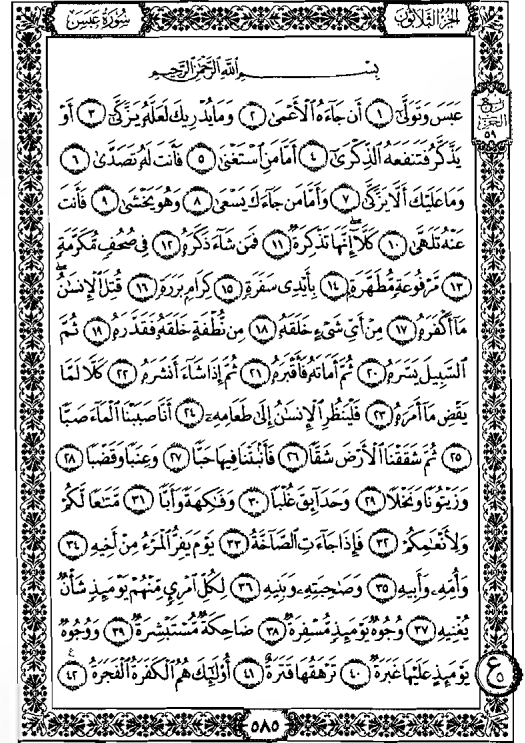 الجزء الثلاثون سورة عبس
بِسْمِ اللَّهِ الرَّحْمَٰنِ الرَّحِيمِ
عَبَسَ وَتَوَلَّىٰ ١ أَن جَاءَهُ الْأَعْمَىٰ ٢ وَمَا يُدْرِيكَ لَعَلَّهُ يَزَّكَّىٰ ٣ أَوْ
يَذَّكَّرُ فَتَنفَعَهُ الذِّكْرَىٰ ٤ أَمَّا مَنِ اسْتَغْنَىٰ ٥ فَأَنتَ لَهُ تَصَدَّىٰ ٦
وَمَا عَلَيْكَ أَلَّا يَزَّكَّىٰ ٧ وَأَمَّا مَن جَاءَكَ يَسْعَىٰ ٨ وَهُوَ يَخْشَىٰ ٩ فَأَنتَ
عَنْهُ تَلَهَّىٰ ١٠ كَلَّا إِنَّهَا تَذْكِرَةٌ ١١ فَمَن شَاءَ ذَكَرَهُ ١٢ فِي صُحُفٍ مُّكَرَّمَةٍ
١٣ مَّرْفُوعَةٍ مُّطَهَّرَةٍ ١٤ بِأَيْدِي سَفَرَةٍ ١٥ كِرَامٍ بَرَرَةٍ ١٦ قُتِلَ الْإِنسَٰنُ
مَا أَكْفَرَهُ ١٧ مِنْ أَيِّ شَيْءٍ خَلَقَهُ ١٨ مِن نُّطْفَةٍ خَلَقَهُ فَقَدَّرَهُ ١٩ ثُمَّ
السَّبِيلَ يَسَّرَهُ ٢٠ ثُمَّ أَمَاتَهُ فَأَقْبَرَهُ ٢١ ثُمَّ إِذَا شَاءَ أَنشَرَهُ ٢٢ كَلَّا لَمَّا
يَقْضِ مَا أَمَرَهُ ٢٣ فَلْيَنظُرِ الْإِنسَٰنُ إِلَىٰ طَعَامِهِ ٢٤ أَنَّا صَبَبْنَا الْمَاءَ صَبًّا
٢٥ ثُمَّ شَقَقْنَا الْأَرْضَ شَقًّا ٢٦ فَأَنبَتْنَا فِيهَا حَبًّا ٢٧ وَعِنَبًا وَقَضْبًا ٢٨
وَزَيْتُونًا وَنَخْلًا ٢٩ وَحَدَائِقَ غُلْبًا ٣٠ وَفَٰكِهَةً وَأَبًّا ٣١ مَّتَٰعًا لَّكُمْ
وَلِأَنْعَٰمِكُمْ ٣٢ فَإِذَا جَاءَتِ الصَّاخَّةُ ٣٣ يَوْمَ يَفِرُّ الْمَرْءُ مِنْ أَخِيهِ ٣٤
وَأُمِّهِ وَأَبِيهِ ٣٥ وَصَٰحِبَتِهِ وَبَنِيهِ ٣٦ لِكُلِّ امْرِئٍ مِّنْهُمْ يَوْمَئِذٍ شَأْنٌ
يُغْنِيهِ ٣٧ وُجُوهٌ يَوْمَئِذٍ مُّسْفِرَةٌ ٣٨ ضَاحِكَةٌ مُّسْتَبْشِرَةٌ ٣٩ وَوُجُوهٌ
يَوْمَئِذٍ عَلَيْهَا غَبَرَةٌ ٤٠ تَرْهَقُهَا قَتَرَةٌ ٤١ أُولَٰئِكَ هُمُ الْكَفَرَةُ الْفَجَرَةُ ٤٢
ربع
الحزب
٥٩
ع
٥
٥٨٥